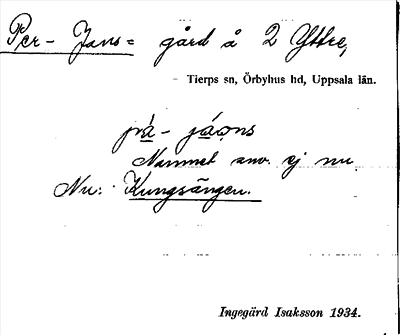 Per- Jans= gård å 2 Yttre,
Tierps sn, Örbyhus hd, Uppsala län.
pá- jáo̧ns
Namnet anv. ej nu
Nu: Kungsängen.
Ingegärd Isaksson 1934.